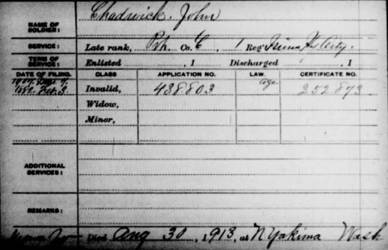 NAME OF SOLDIER: Chadwick, John
SERVICE: Late rank, Co. E, 1 Reg't
TERM OF SERVICE: Enlisted , 1 Discharged , 1
DATE OF FILING. CLASS. APPLICATION NO. LAW. CERTIFICATE NO.
Invalid, 438803 252873
Widow,
Minor,
ADDITIONAL SERVICES:
REMARKS:
Died Aug 30, 1913, at N Yakima Wash